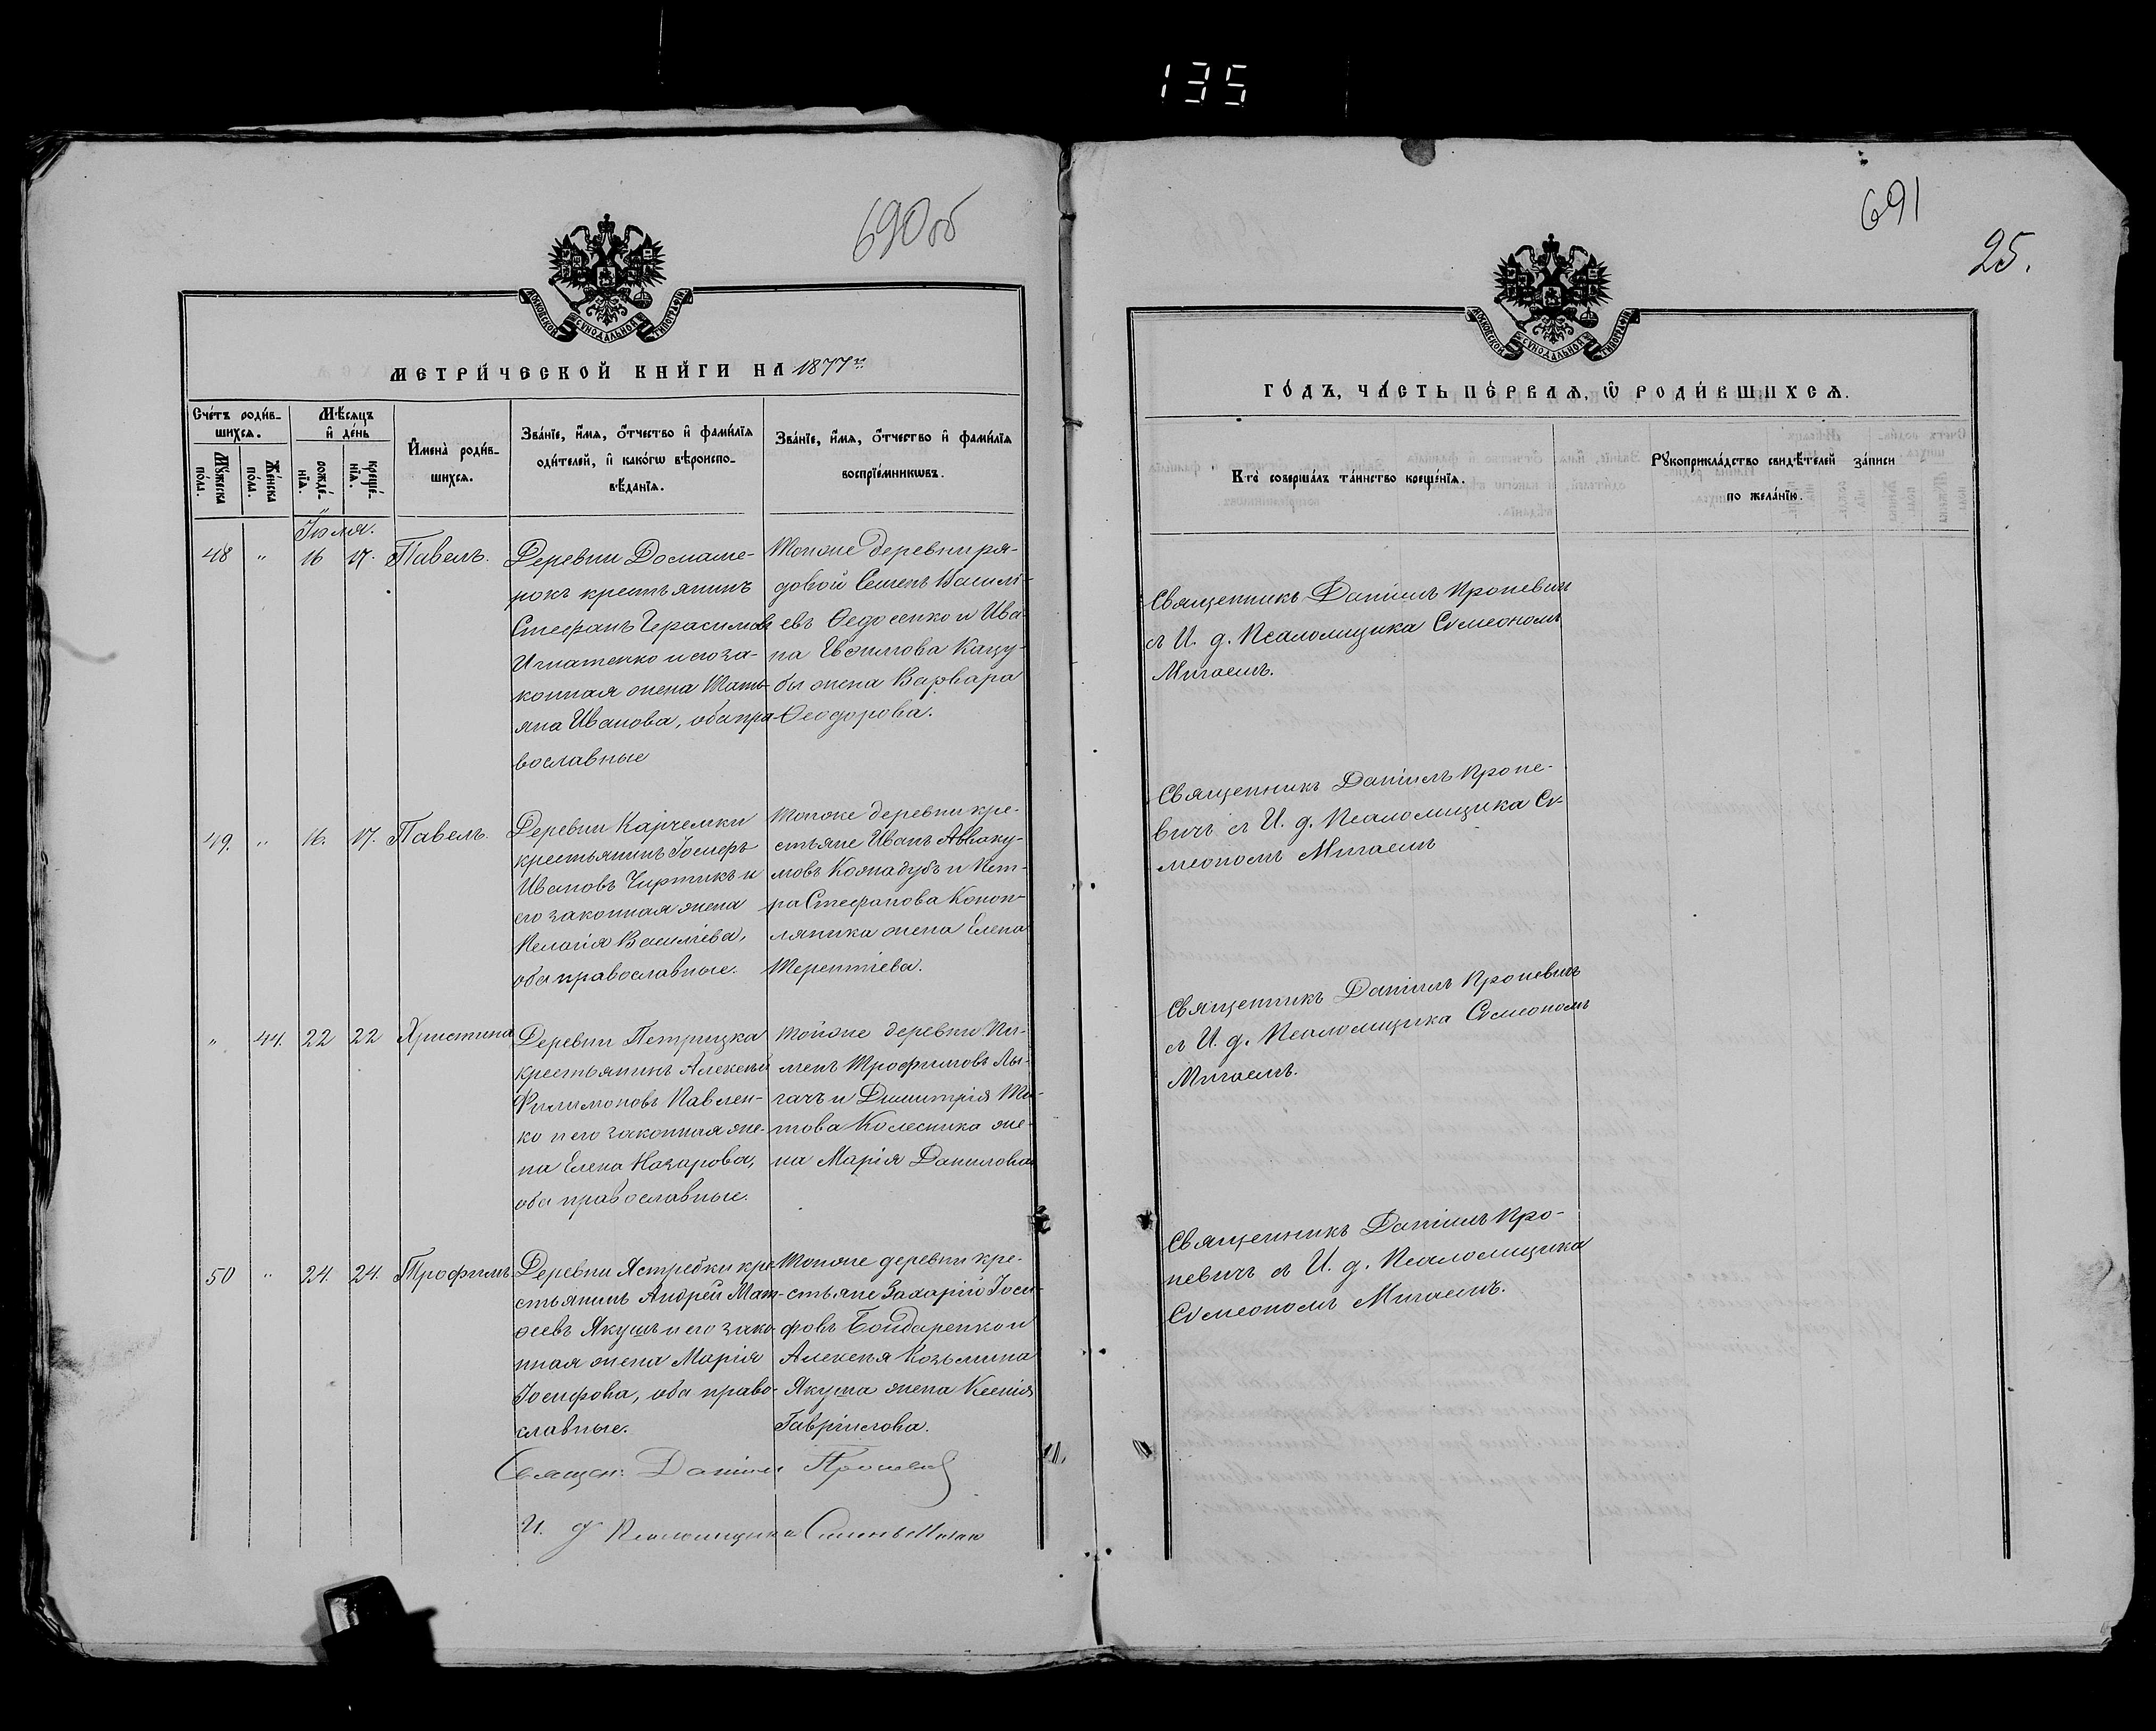 135
690об
МОСКОВСКОЙ СѴНОДАЛЬНОЙ ТИПОГРАФІИ
МЕТРИ́ЧЕСКОЙ КНИ́ГИ НА 1877й
Сче́тъ роди́в-
шихсѧ.
Мѣ́сѧцъ
и҆ де́нь
Мꙋ́жеска
по́ла.
Же́нска
по́ла.
рожде́-
нїѧ.
креще́-
нїѧ.
И҆мена̀ роди́в-
шихсѧ.
Зва́нїе, и҆́мѧ, ѻ҆́тчество и҆ фами́лїѧ
роди́телей, и҆ како́гѡ вѣроиспо-
вѣ́данїѧ.
Зва́нїе, и҆́мѧ, ѻ҆́тчество и҆ фами́лїѧ
воспрїе́мникѡвъ.
Іюля.
48 " 16 17. Павелъ.
Деревни Домаме-
рокъ крестьянинъ
Стефанъ Герасимовъ
Игнатенко и его за-
конная жена Тать-
яна Иванова, оба пра-
вославные
Тойже деревни ря-
довой Семенъ Василі-
евъ Ѳедосенко и Ива-
на Евѳимова Кацу-
бы жена Варвара
Ѳеодорова.
49. " 16. 17. Павелъ.
Деревни Карчемки
крестьянинъ Іосифъ
Ивановъ Чиртикъ и
его законная жена
Пелагія Василіева,
оба православные.
Тойже деревни кре-
стьяне Иванъ Аввaку-
мовъ Колпадубъ и Пет-
ра Стефанова Коноп-
ляника жена Елена
Терентіева.
" 44. 22 22 Христина
Деревни Петрицка
крестьянинъ Алексѣй
Филимоновъ Павлен-
ко и его законная же-
на Елена Назарова,
оба православные.
Тойже деревни Пи-
менъ Трофимовъ Лы-
гачъ и Димитрія Ти-
това Колесника же-
на Марія Данилова
50 " 24. 24. Трофимъ
Деревни Ястребки кре-
стьянинъ Андрей Мат-
ѳеевъ Якушъ и его зако-
нная жена Марія
Іосифова, оба право-
славные.
Тойже деревни кре-
стьяне Захарій Іоси-
фовъ Бондаренко и
Алексѣя Козьмина
Якуша жена Ксенія
Гавріилова.
Священ: Даніилъ
И. д Псаломщика
691
25.
МОСКОВСКОЙ СѴНОДАЛЬНОЙ ТИПОГРАФІИ
ГО́ДЪ, ЧА́СТЬ ПЕ́РВАѦ, Ѡ҆ РОДИ́ВШИХСѦ.
Кто̀ соверша́лъ та́инство креще́нїѧ.
Рꙋкоприкла́дство свидѣ́телей за́писи
по жела́нїю.
Священникъ Даніилъ Кропевичъ
съ И. д. Псаломщика Сѵмеономъ
Мигаемъ.
Священникъ Даніилъ Кропе-
вичъ съ И. д. Псаломщика Сѵ-
меономъ Мигаемъ
Священникъ Даніилъ Кропевичъ
съ И. д. Псаломщика Сѵмеономъ
Мигаемъ.
Священникъ Даніилъ Кро-
певичъ съ И. д. Псаломщика
Сѵмеономъ Мигаемъ.